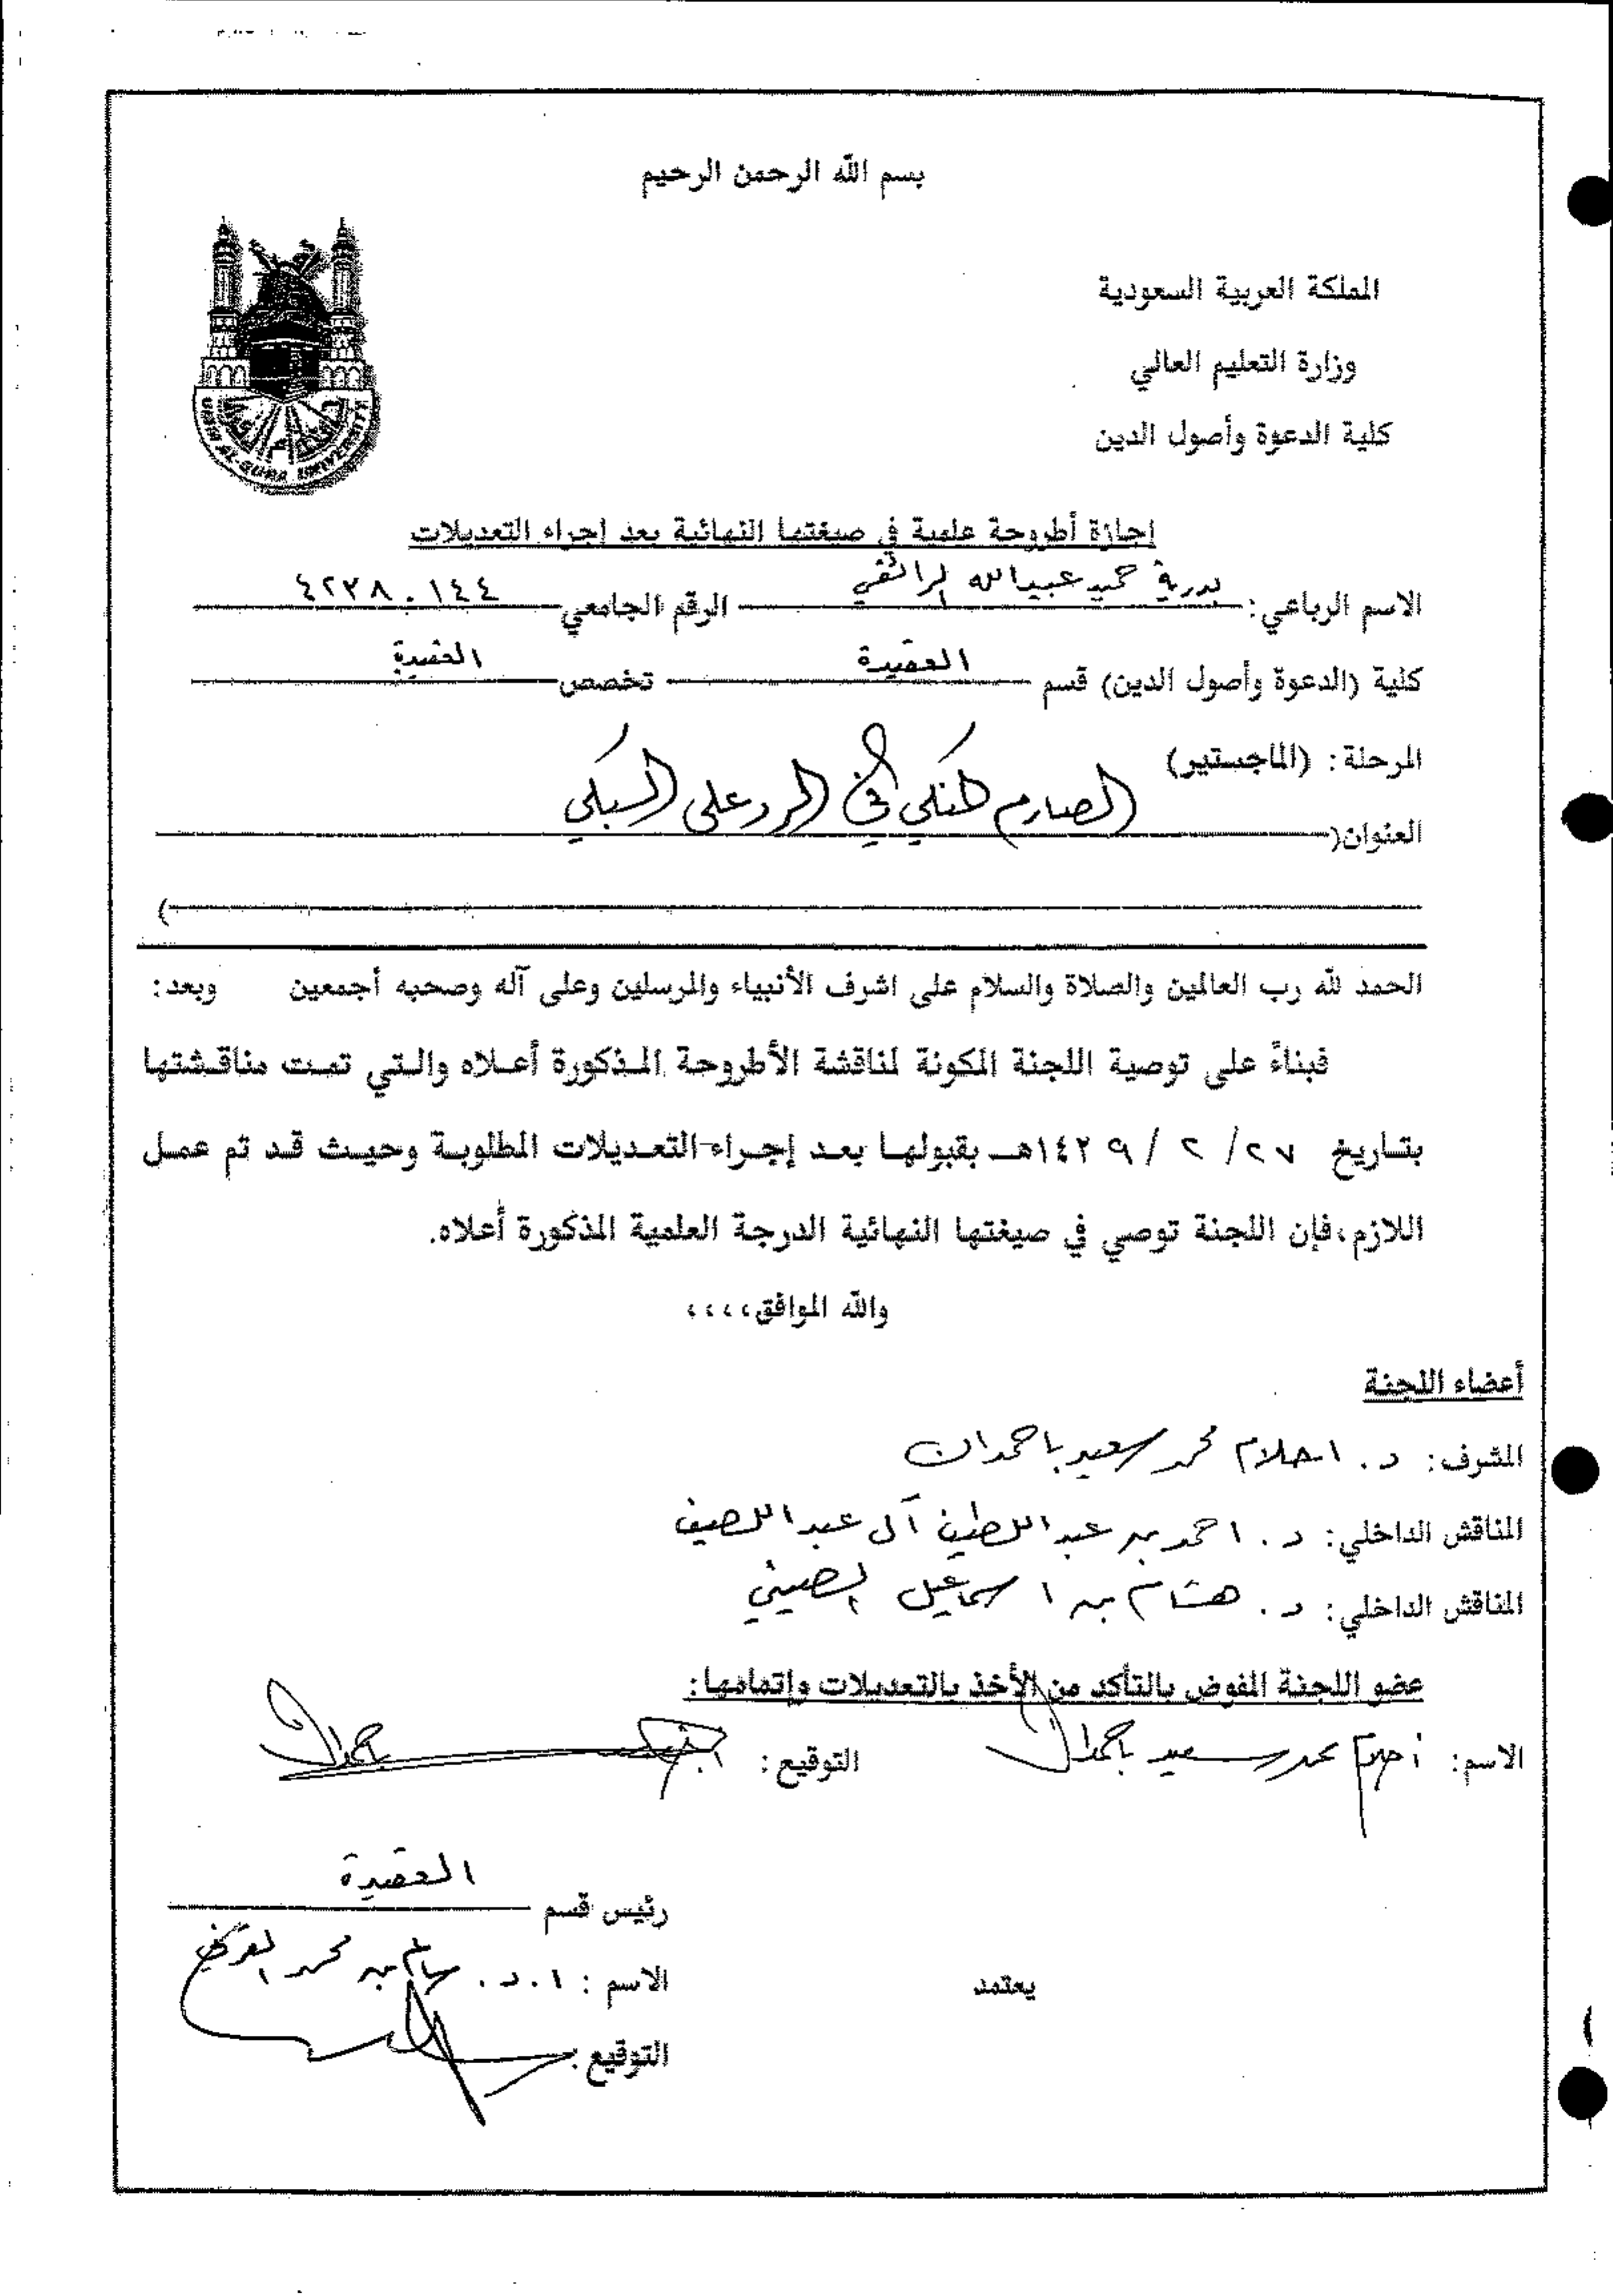 بسم الله الرحمن الرحيم
المملكة العربية السعودية
وزارة التعليم العالي
كلية الدعوة وأصول الدين
UMM AL-QURA UNIVERSITY
إجازة أطروحة علمية في صيغتها النهائية بعد إجراء التعديلات
الاسم الرباعي: بدرية حميد عبيدالله الرائقي الرقم الجامعي ٤٢٣٨٠١٤٤
كلية (الدعوة وأصول الدين) قسم العقيدة تخصص العقيدة
المرحلة: (الماجستير)
العنوان( الصارم المنكي في الرد على السبكي
)
الحمد لله رب العالمين والصلاة والسلام على اشرف الأنبياء والمرسلين وعلى آله وصحبه أجمعين وبعد:
فبناءً على توصية اللجنة المكونة لمناقشة الأطروحة المذكورة أعلاه والتي تمت مناقشتها
بتاريخ ٢٧/ ٢ / ١٤٢٩هـ بقبولها بعد إجراء التعديلات المطلوبة وحيث قد تم عمل
اللازم،فإن اللجنة توصي في صيغتها النهائية الدرجة العلمية المذكورة أعلاه.
والله الموافق،،،،
أعضاء اللجنة
المشرف: د. احلام محمد سعيد باحمدان
المناقش الداخلي: د. احمد بن عبد اللطيف آل عبد اللطيف
المناقش الداخلي: د. هشام بن اسماعيل الصيني
عضو اللجنة المفوض بالتأكد من الأخذ بالتعديلات وإتمامها:
الاسم: أحلام محمد سعيد باحمدان التوقيع:
رئيس قسم العقيدة
يعتمد
الاسم : ا.د. سالم بن محمد القرني
التوقيع: